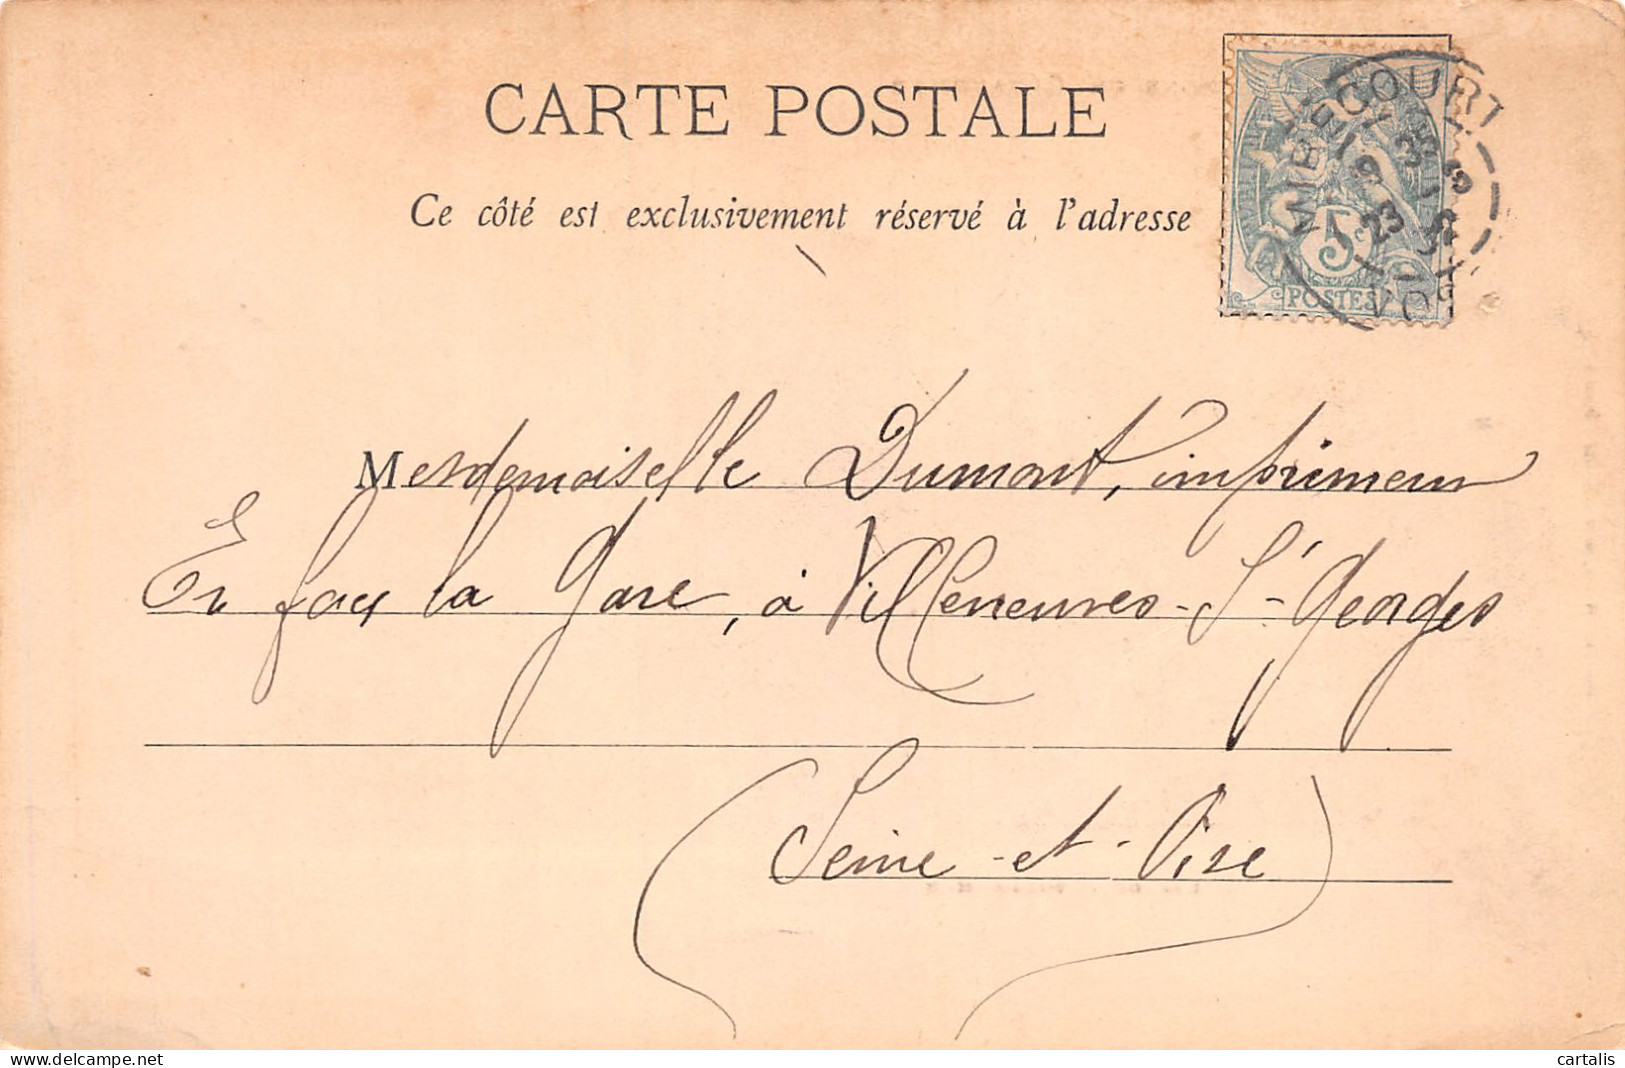 CARTE POSTALE
Ce côté est exclusivement réservé à l'adresse
5c
POSTES
MIRECOURT
23
VOSGES
Mesdemoiselle Dumont, imprimeur
En face la Gare, à Villeneuves-St-Georges
(Seine-et-Oise)
delcampe.net
cartalis